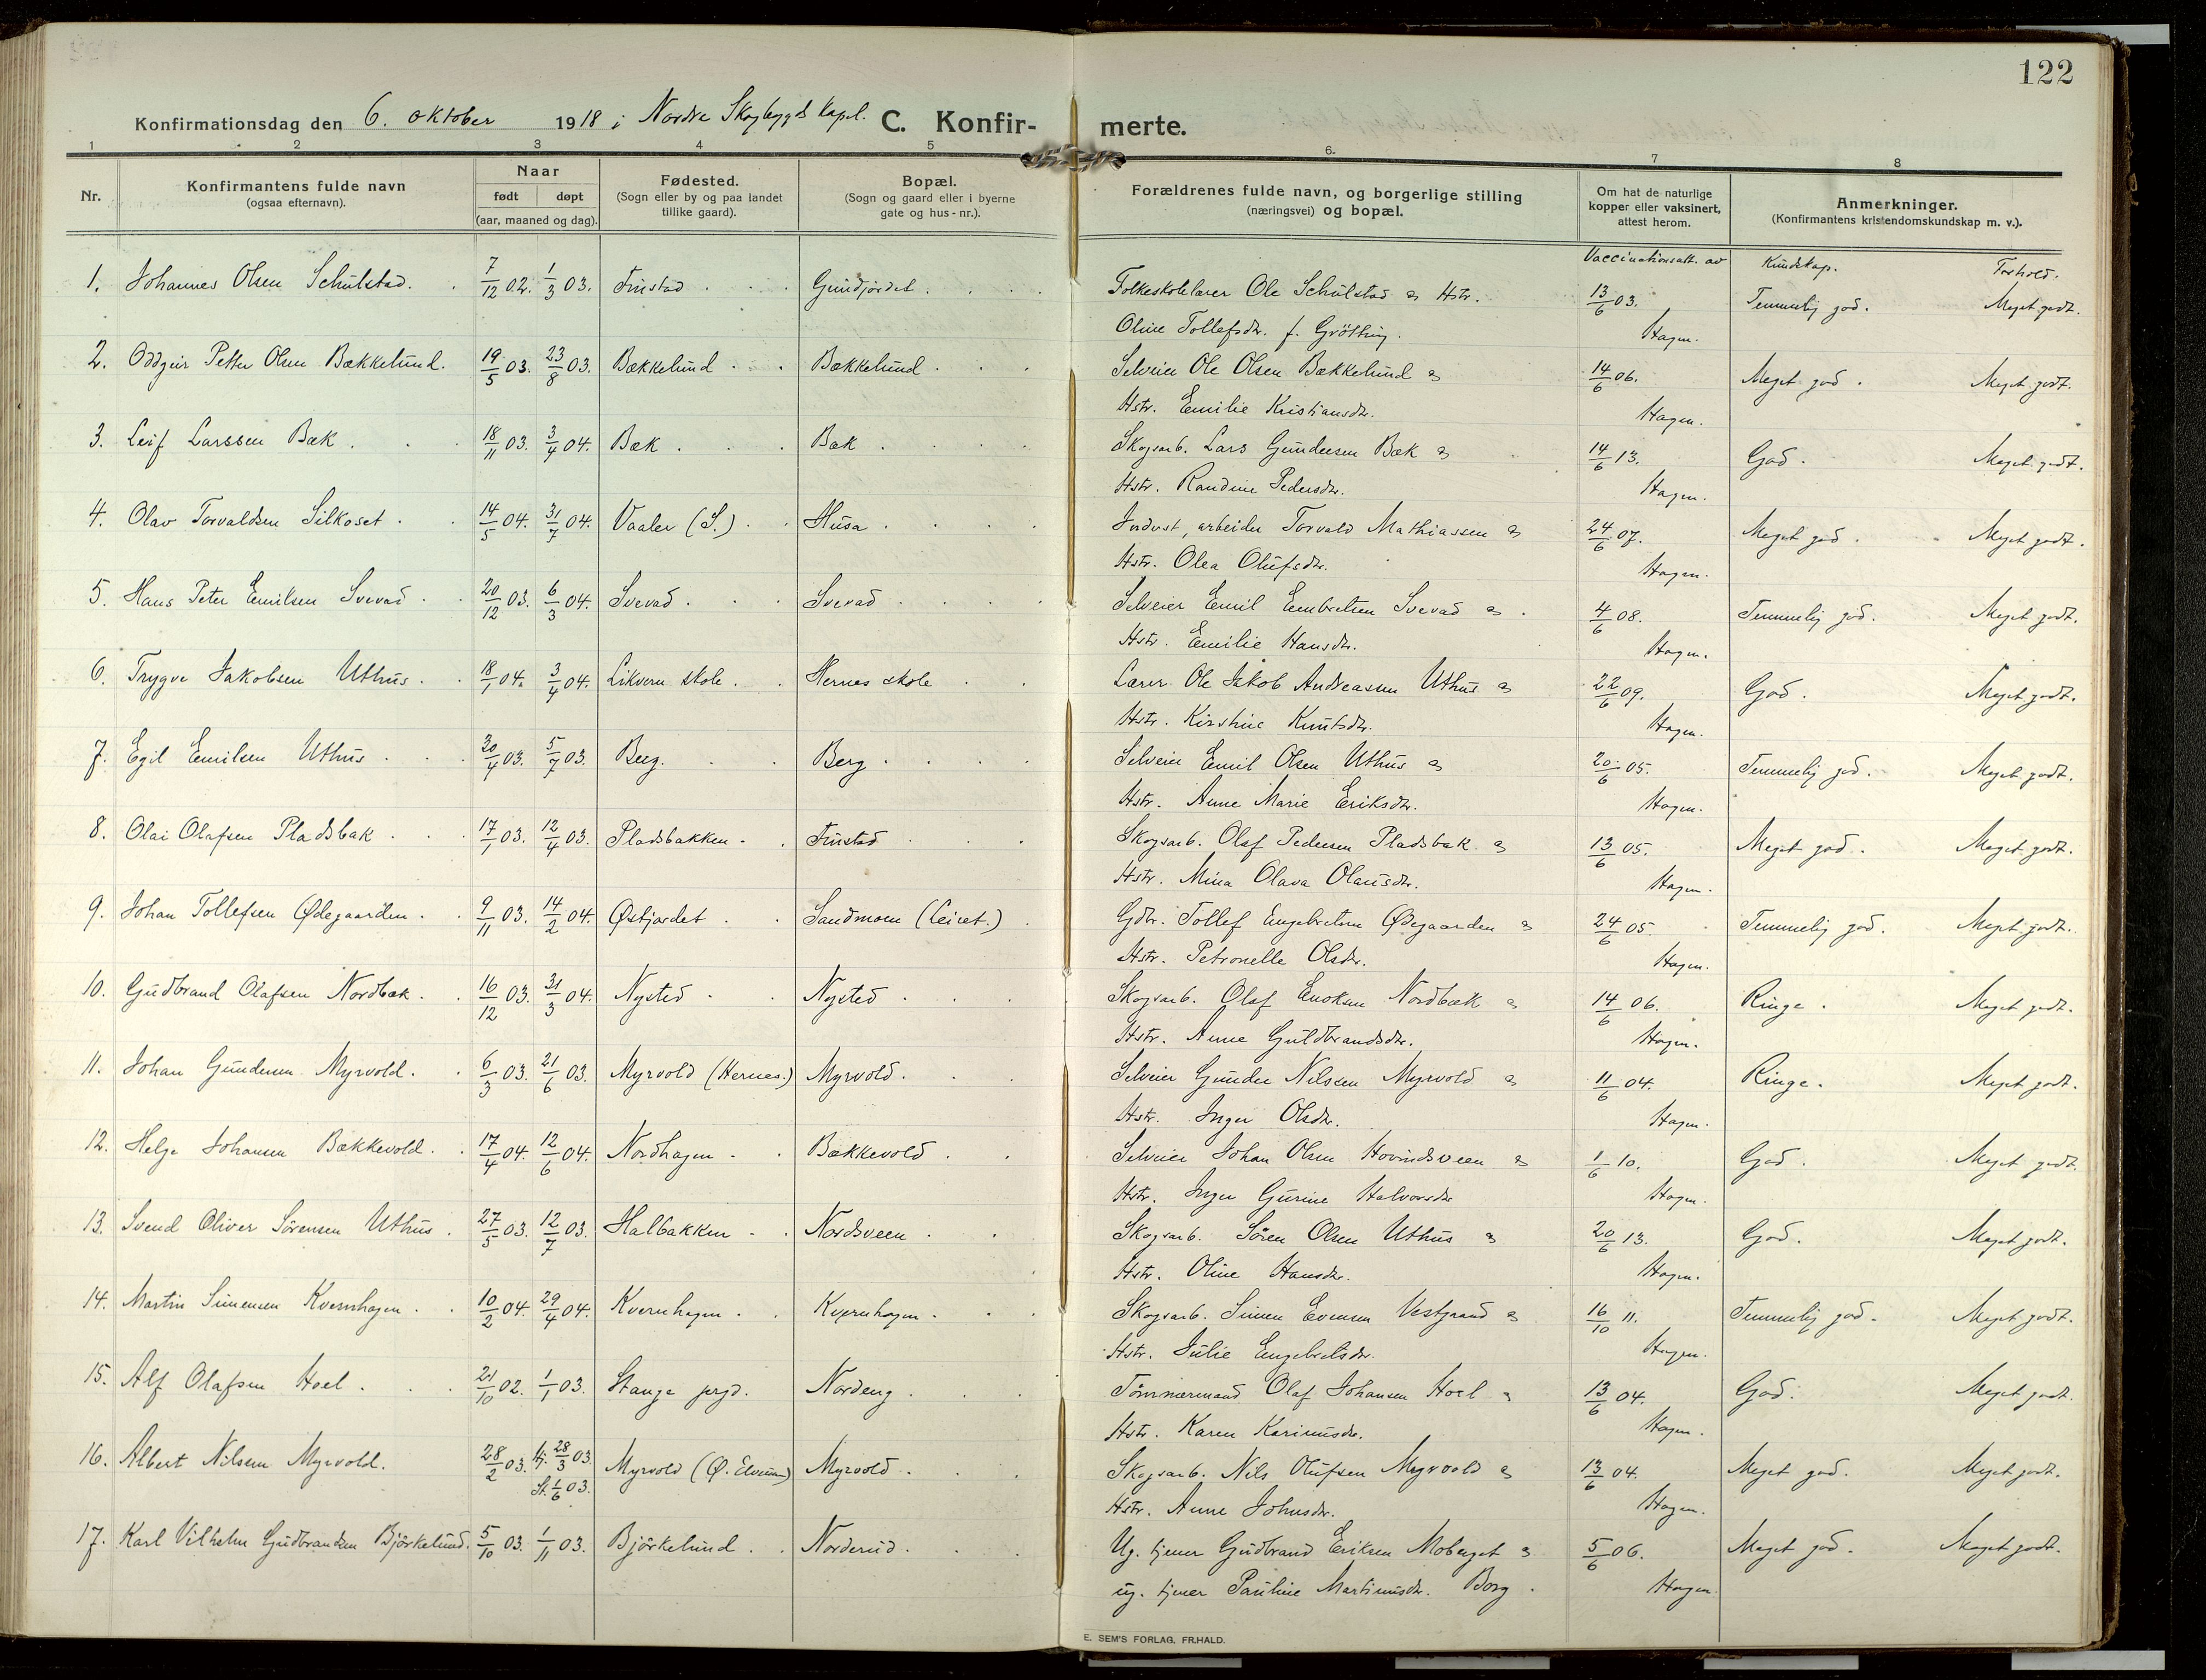 122
Konfirmationsdag den 6. oktober 1918 i Nordre Skogbygds kapel. C. Konfir- merte.
1 2 3 4 5 6. 7 8
Nr. Konfirmantens fulde navn (ogsaa efternavn). Naar født døpt (aar, maaned og dag). Fødested. (Sogn eller by og paa landet tillike gaard). Bopæl. (Sogn og gaard eller i byerne gate og hus-nr.). Forældrenes fulde navn, og borgerlige stilling (næringsvei) og bopæl. Om hat de naturlige kopper eller vaksinert, attest herom. Anmerkninger. (Konfirmantens kristendomskundskap m. v.).
Vaccinationsatt. av Kundskap. Forhold.
1. Johannes Olsen Schulstad. 7/12 02. 1/3 03. Frustad Gundjordet Folkeskolelærer Ole Schulstad og Hstr. 13/6 03. Temmelig god. Meget godt.
Oline Tollefsdtr. f. Grøtting. Hagen.
2. Oddgeir Petter Olsen Bækkelund. 19/5 03. 23/8 03. Bækkelund Bækkelund Selveier Ole Olsen Bækkelund og 14/6 06. Meget god. Meget godt.
Hstr. Emilie Kristiansdtr. Hagen.
3. Leif Larssen Bæk. 18/11 03. 3/4 04. Bæk Bæk Skogsarb. Lars Gundersen Bæk og 14/6 13. God. Meget godt.
Hstr. Randine Pedersdtr. Hagen.
4. Olav Torvaldsen Silkoset 14/5 04. 31/7 04. Vaaler (S.) Husa Indust. arbeider Torvald Mathiassen og 24/6 07. Meget god. Meget godt.
Hstr. Olea Olufsdtr. Hagen.
5. Hans Peter Emilsen Svevad 20/12 03. 6/3 04. Svevad Svevad Selveier Emil Embretsen Svevad og 4/6 08. Temmelig god. Meget godt.
Hstr. Emilie Hansdtr. Hagen.
6. Trygve Jakobsen Uthus 18/1 04. 3/4 04. Likvern skole Hernes skole Lærer Ole Jakob Andreassen Uthus og 22/6 09. God. Meget godt.
Hstr. Kirstine Knutsdtr. Hagen.
7. Egil Emilsen Uthus 30/4 03. 5/7 03. Berg Berg Selveier Emil Olsen Uthus og 20/6 05. Temmelig god. Meget godt.
Hstr. Anne Marie Eriksdtr. Hagen.
8. Olai Olafsen Pladsbak 17/1 03. 12/4 03. Pladsbakken Frustad Skogsarb. Olaf Pedersen Pladsbak og 13/6 05. Meget god. Meget godt.
Hstr. Mina Olava Olausdtr. Hagen.
9. Johan Tollefsen Ødegaarden 9/11 03. 14/2 04. Østjordet Sandmoen (Leiret.) Gdbr. Tollef Engebretsen Ødegaarden og 24/6 05. Temmelig god. Meget godt.
Hstr. Petronelle Olsdtr. Hagen.
10. Gudbrand Olafsen Nordbæk 16/12 03. 31/3 04. Nysted Nysted Skogsarb. Olaf Enoksen Nordbæk og 14/6 06. Ringe. Meget godt.
Hstr. Anne Guldbrandsdtr. Hagen.
11. Johan Gundersen Myrvold. 6/3 03. 21/6 03. Myrvold (Hernes.) Myrvold. Selveier Gunder Nilssen Myrvold og 11/6 04. Ringe. Meget godt.
Hstr. Inger Olsdtr. Hagen.
12. Helge Johansen Bækkevold. 17/4 04. 12/6 04. Nordhagen Bækkevold Selveier Johan Olsen Hovindsveen og 1/6 10. God. Meget godt.
Hstr. Inger Gurine Halvorsdtr Hagen.
13. Svend Oliver Sørensen Uthus. 27/5 03. 12/7 03. Halbakken Nordsveen Skogsarb. Søren Olsen Uthus og 20/6 13. God. Meget godt.
Hstr. Oline Hansdtr. Hagen.
14. Martin Simensen Kvernhagen 10/2 04. 29/4 04. Kvernhagen Kvernhagen Skogsarb. Simen Evensen Vestgaard og 16/10 11. Temmelig god. Meget godt.
Hstr. Julie Engebretsdtr. Hagen.
15. Alf Olafsen Hoel 21/10 02. 1/1 03. Stange prgd. Nordeng Tømmermand Olaf Johansen Hoel og 13/6 04. God. Meget godt.
Hstr. Karen Karinusdtr. Hagen.
16. Albert Nilsen Myrvold. 28/2 03. Hj. 28/3 03. St. 1/6 03. Myrvold (Ø. Elverum) Myrvold Skogsarb. Nils Olufsen Myrvold og 13/6 04. Meget god. Meget godt.
Hstr. Anne Johnsdtr. Hagen.
17. Karl Vilhelm Gudbrandsen Bjørkelund. 5/10 03. 1/11 03. Bjørkelund Norderud Ug. tjener Gudbrand Eriksen Moberget og 5/6 06. Meget god. Meget godt.
ug. tjener Pauline Martinusdtr. Borg. Hagen.
E. SEM'S FORLAG, FR.HALD.